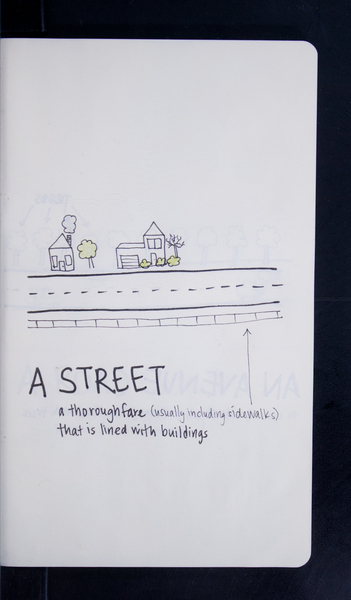 A STREET
a thoroughfare (usually including sidewalks)
that is lined with buildings